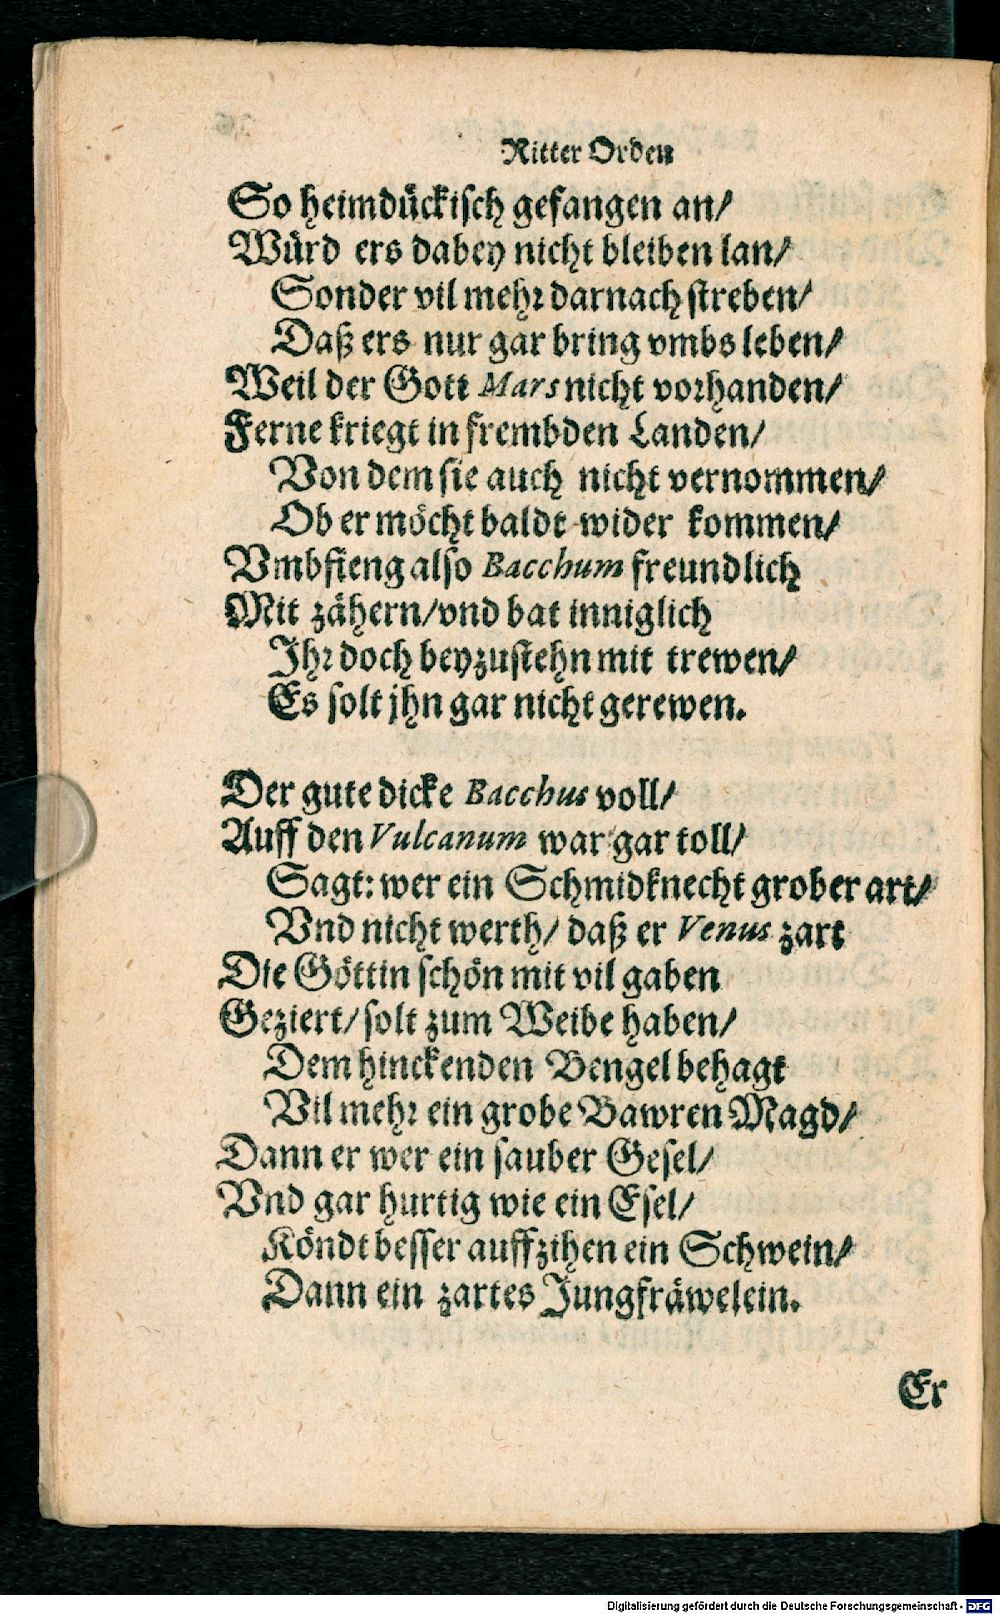 Ritter Orden
So heimdückisch gefangen an/
Würd ers dabey nicht bleiben lan/
Sonder vil mehr darnach streben/
Daß ers nur gar bring vmbs leben/
Weil der Gott Mars nicht vorhanden/
Ferne kriegt in frembden Landen/
Von dem sie auch nicht vernommen/
Ob er möcht baldt wider kommen/
Vmbfieng also Bacchum freundlich
Mit zähern/vnd bat inniglich
Ihr doch beyzustehn mit trewen/
Es solt jhn gar nicht gerewen.
Der gute dicke Bacchus voll/
Auff den Vulcanum war gar toll/
Sagt: wer ein Schmidknecht grober art/
Vnd nicht werth/ daß er Venus zart
Die Göttin schön mit vil gaben
Geziert/ solt zum Weibe haben/
Dem hinckenden Bengel behagt
Vil mehr ein grobe Bawren Magd/
Dann er wer ein sauber Gesel/
Vnd gar hurtig wie ein Esel/
Köndt besser auffzihen ein Schwein/
Dann ein zartes Jungfräwelein.
Er
Digitalisierung gefördert durch die Deutsche Forschungsgemeinschaft - DFG